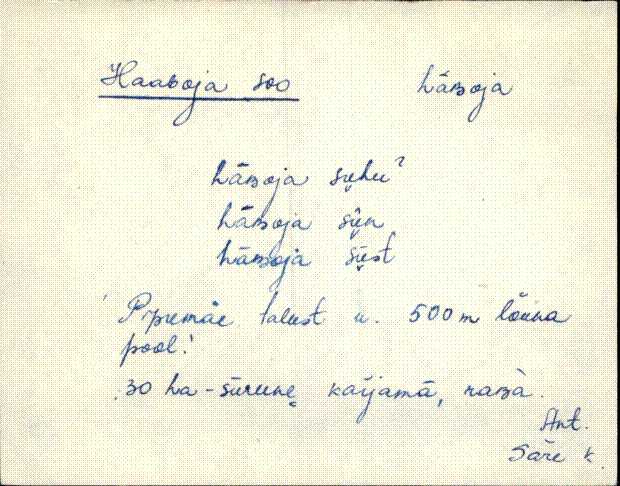 Haaboja soo hāʙoja
hāʙoja su̬hu?
hāʙoja sū̬n
hāʙoja sū̬st
Pipremäe talust u. 500 m lõuna
pool.
30 ha-sūrune karjamā, raʙà.
Ant.
Säre k.